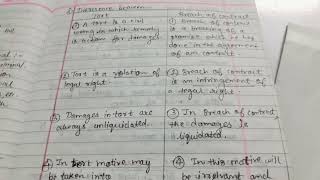 Difference between
Tort
Breach of contract
① A tort is a civil
wrong in which remedy
is a claim for damages
① Breach of contract
is a breaking of a
promise which is
done in the agreement
of an contract
② Tort is a violation of
legal right.
② Breach of contract
is an infringement of
a legal right.
③ Damages in tort are
always unliquidated.
③ In Breach of contract
the damages is
liquidated.
④ In tort motive may
be taken into
④ In this motive will
be irrelevant and